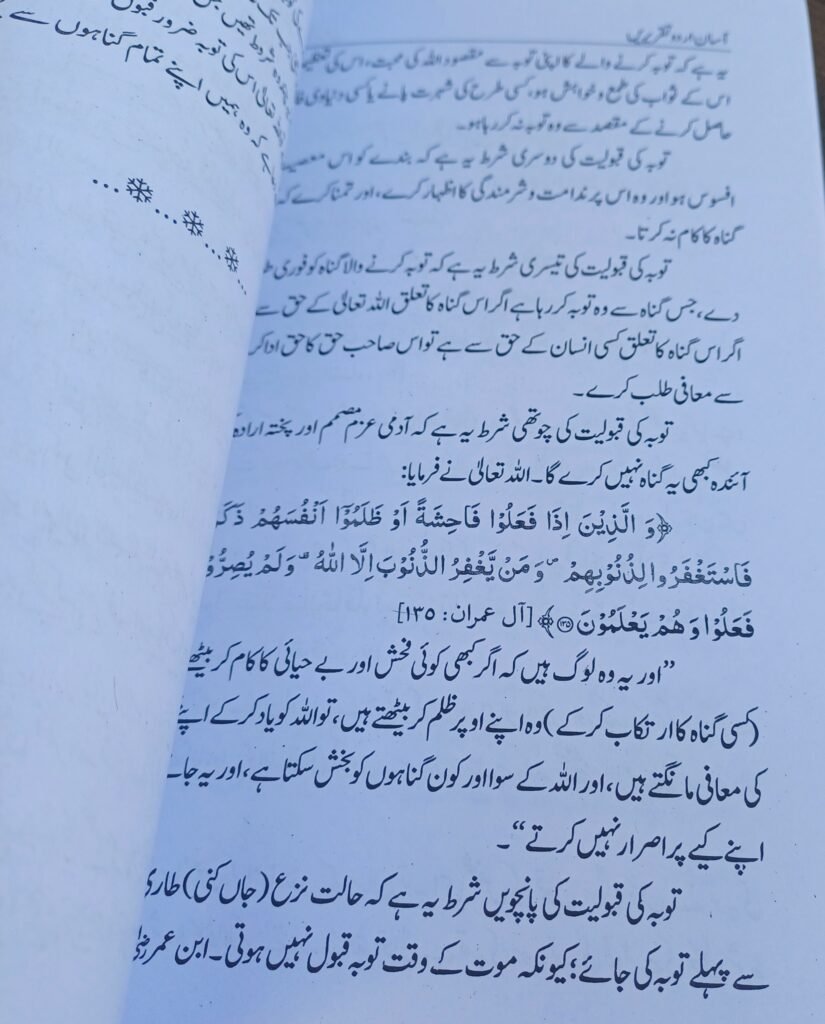 آسان اردو تقریریں
یہ ہے کہ توبہ کرنے والے کا اپنی توبہ سے مقصود اللہ کی محبت، اس کی
اس کے ثواب کی طمع و خواہش ہو، کسی طرح کی شہرت پانے یا کسی دنیاوی
حاصل کرنے کے مقصد سے وہ توبہ نہ کر رہا ہو۔
توبہ کی قبولیت کی دوسری شرط یہ ہے کہ بندے کو اس
افسوس ہو اور وہ اس پر ندامت و شرمندگی کا اظہار کرے، اور تمنا کرے کہ
گناہ کا کام نہ کرتا۔
توبہ کی قبولیت کی تیسری شرط یہ ہے کہ توبہ کرنے والا گناہ کو فوری
دے، جس گناہ سے وہ توبہ کر رہا ہے اگر اس گناہ کا تعلق اللہ تعالیٰ کے حق سے
اگر اس گناہ کا تعلق کسی انسان کے حق سے ہے تو اس صاحب حق کا حق ادا کر
سے معافی طلب کرے۔
توبہ کی قبولیت کی چوتھی شرط یہ ہے کہ آدمی عزم مصمم اور پختہ ارادہ
آئندہ کبھی یہ گناہ نہیں کرے گا۔ اللہ تعالیٰ نے فرمایا:
﴿وَ الَّذِیْنَ اِذَا فَعَلُوْا فَاحِشَةً اَوْ ظَلَمُوْۤا اَنْفُسَهُمْ ذَكَر
فَاسْتَغْفَرُوا لِذُنُوْبِهِمْ ۪ وَ مَنْ یَّغْفِرُ الذُّنُوْبَ اِلَّا اللّٰهُ ۪ وَ لَمْ یُصِرُّوْ
فَعَلُوْا وَ هُمْ یَعْلَمُوْنَ ۝۱۳۵﴾ [آل عمران: ١٣٥]
”اور یہ وہ لوگ ہیں کہ اگر کبھی کوئی فحش اور بے حیائی کا کام کر بیٹھے
(کسی گناہ کا ارتکاب کر کے) وہ اپنے اوپر ظلم کر بیٹھتے ہیں، تو اللہ کو یاد کر کے اپنے
کی معافی مانگتے ہیں، اور اللہ کے سوا اور کون گناہوں کو بخش سکتا ہے، اور یہ جا
اپنے کیے پر اصرار نہیں کرتے“۔
توبہ کی قبولیت کی پانچویں شرط یہ ہے کہ حالت نزع (جاں کنی) طاری
سے پہلے توبہ کی جائے؛ کیونکہ موت کے وقت توبہ قبول نہیں ہوتی۔ ابن عمر
اللہ تعالیٰ اس کی توبہ ضرور قبول
کہ وہ ہمیں اپنے تمام گناہوں سے